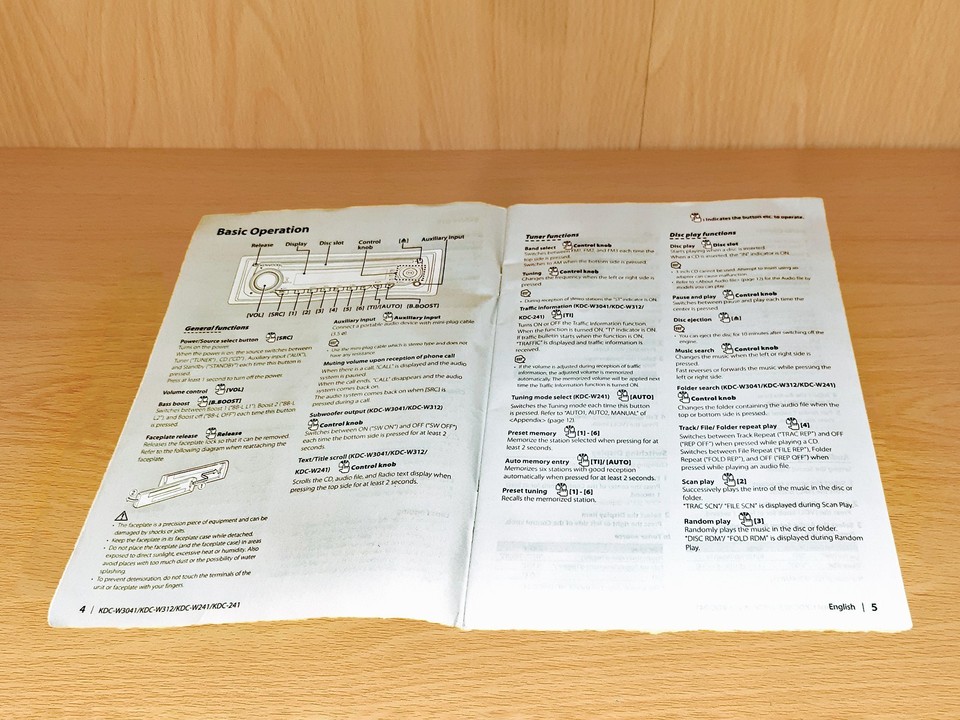 Basic Operation
Release Display Disc slot Control knob [⏏] Auxiliary input
[VOL] [SRC] [1] [2] [3] [4] [5] [6] [TI]/[AUTO] [B.BOOST]
General functions
Power/Source select button [SRC]
Turns on the power.
When the power is on, the source switches between
Tuner ("TUNER"), CD ("CD"), Auxiliary input ("AUX"),
and Standby ("STANDBY") each time this button is
pressed.
Press at least 1 second to turn off the power.
Volume control [VOL]
Bass boost [B.BOOST]
Switches between Boost 1 ("BB-L 1"), Boost 2 ("BB-L
L2"), and Boost off ("BB-L OFF") each time this button
is pressed.
Faceplate release Release
Releases the faceplate lock so that it can be removed.
Refer to the following diagram when reattaching the
faceplate.
• The faceplate is a precision piece of equipment and can be
damaged by shocks or jolts.
• Keep the faceplate in its faceplate case while detached.
• Do not place the faceplate (and the faceplate case) in areas
exposed to direct sunlight, excessive heat or humidity. Also
avoid places with too much dust or the possibility of water
splashing.
• To prevent deterioration, do not touch the terminals of the
unit or faceplate with your fingers.
Auxiliary input Auxiliary input
Connect a portable audio device with mini-plug cable
• Use the mini-plug cable which is stereo type and does not
have any resistance.
Muting volume upon reception of phone call
When there is a call, "CALL" is displayed and the audio
system is paused.
When the call ends, "CALL" disappears and the audio
system comes back on.
The audio system comes back on when [SRC] is
pressed during a call.
Subwoofer output (KDC-W3041/KDC-W312)
Control knob
Switches between ON ("SW ON") and OFF ("SW OFF")
each time the bottom side is pressed for at least 2
seconds.
Text/Title scroll (KDC-W3041/KDC-W312/
KDC-W241) Control knob
Scrolls the CD, audio file, and Radio text display when
pressing the top side for at least 2 seconds.
4 | KDC-W3041/KDC-W312/KDC-W241/KDC-241
: Indicates the button etc. to operate.
Tuner functions
Band select Control knob
Switches between FM1, FM2, and FM3 each time the
top side is pressed.
Switches to AM when the bottom side is pressed.
Tuning Control knob
Changes the frequency when the left or right side is
pressed.
• During reception of stereo stations the "ST" indicator is ON.
Traffic information (KDC-W3041/KDC-W312/
KDC-241) [TI]
Turns ON or OFF the Traffic information function.
When the function is turned ON, "TI" indicator is ON.
If traffic bulletin starts when the function is ON,
"TRAFFIC" is displayed and traffic information is
received.
• If the volume is adjusted during reception of traffic
information, the adjusted volume is memorized
automatically. The memorized volume will be applied next
time the Traffic Information function is turned ON.
Tuning mode select (KDC-W241) [AUTO]
Switches the Tuning mode each time this button
is pressed. Refer to "AUTO1, AUTO2, MANUAL" of
<Appendix> (page 12).
Preset memory [1] - [6]
Memorize the station selected when pressing for at
least 2 seconds.
Auto memory entry [TI]/ [AUTO]
Memorizes six stations with good reception
automatically when pressed for at least 2 seconds.
Preset tuning [1] - [6]
Recalls the memorized station.
Disc play functions
Disc play Disc slot
Starts playing when a disc is inserted.
When a CD is inserted, the "IN" indicator is ON.
• 3 inch CD cannot be used. Attempt to insert using an
adapter can cause malfunction.
• Refer to <About Audio file> (page 12) for the Audio file for
models you can play.
Pause and play Control knob
Switches between pause and play each time the
center is pressed.
Disc ejection [⏏]
• You can eject the disc for 10 minutes after switching off the
engine.
Music search Control knob
Changes the music when the left or right side is
pressed.
Fast reverses or forwards the music while pressing the
left or right side.
Folder search (KDC-W3041/KDC-W312/KDC-W241)
Control knob
Changes the folder containing the audio file when the
top or bottom side is pressed.
Track/ File/ Folder repeat play [4]
Switches between Track Repeat ("TRAC REP") and OFF
("REP OFF") when pressed while playing a CD.
Switches between File Repeat ("FILE REP"), Folder
Repeat ("FOLD REP"), and OFF ("REP OFF") when
pressed while playing an audio file.
Scan play [2]
Successively plays the intro of the music in the disc or
folder.
"TRAC SCN"/ "FILE SCN" is displayed during Scan Play.
Random play [3]
Randomly plays the music in the disc or folder.
"DISC RDM"/ "FOLD RDM" is displayed during Random
Play.
English | 5